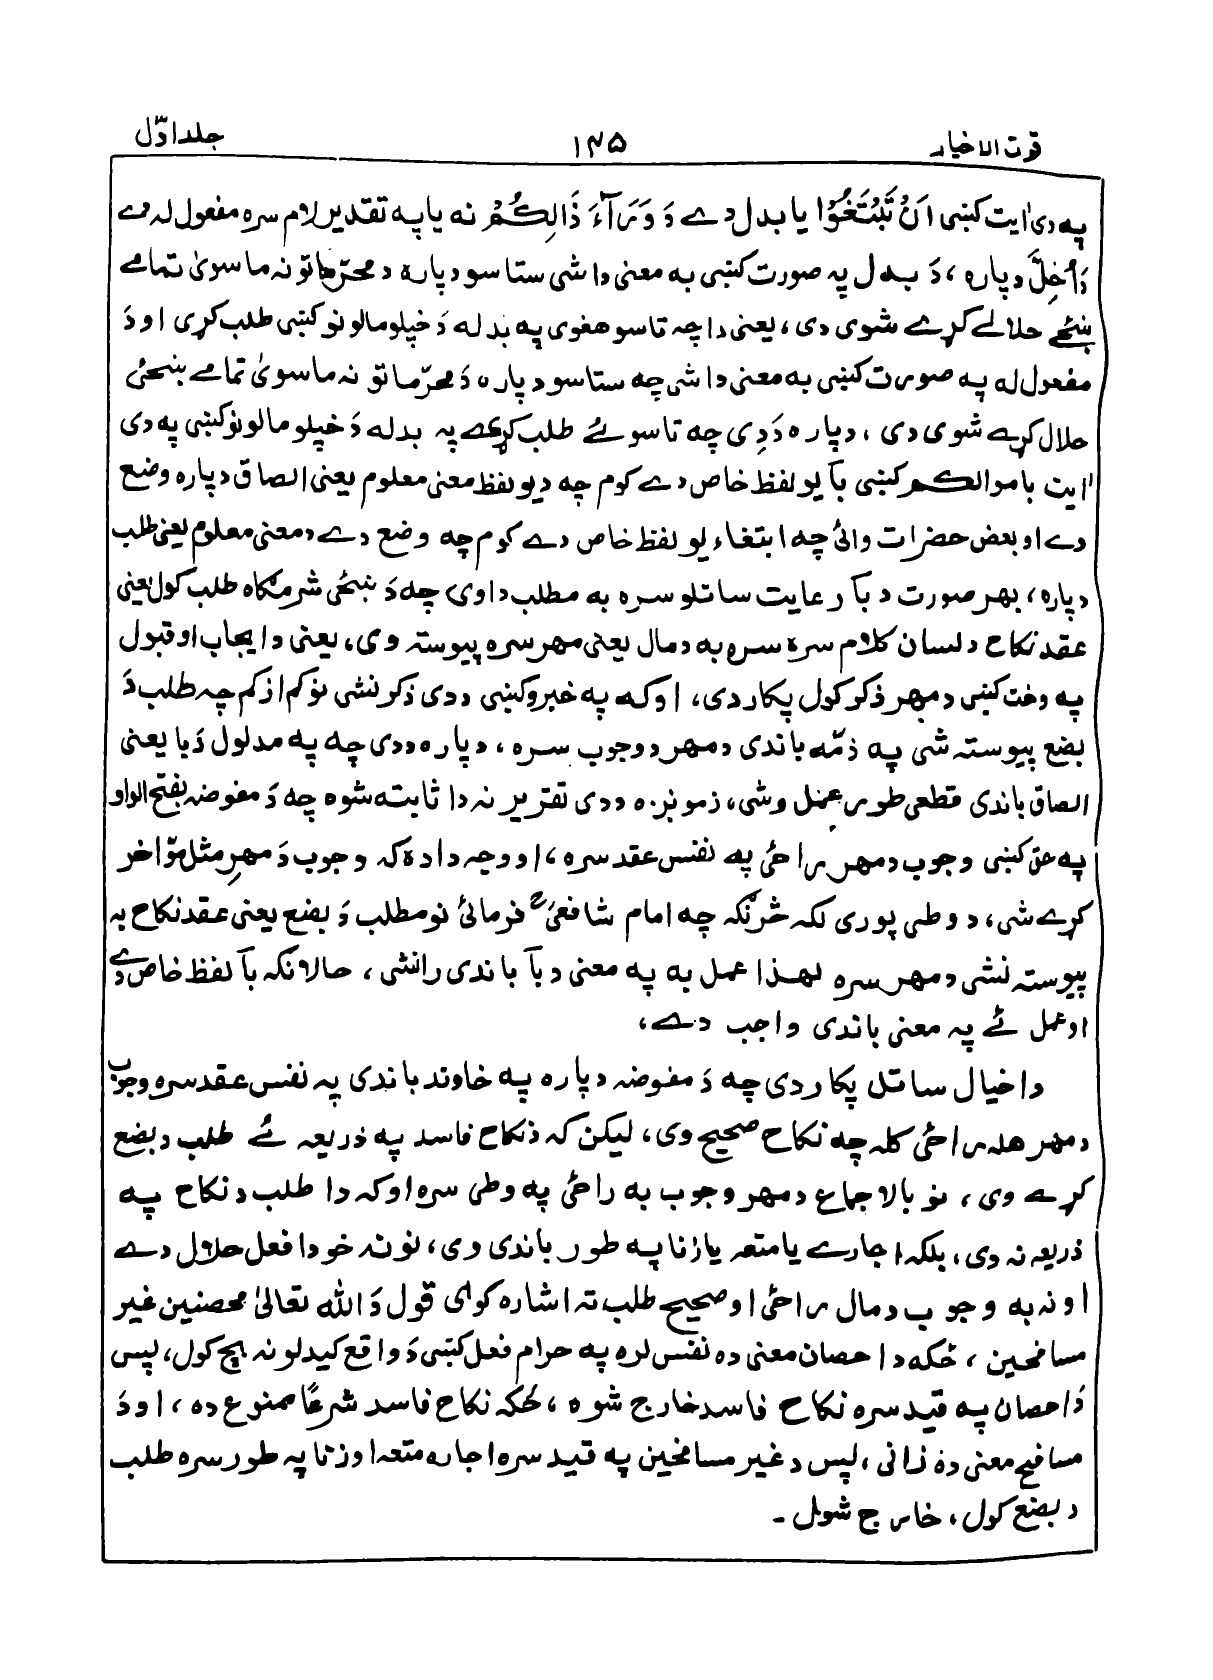 قرت الاخیار ۱۳۵ جلد اوّل
په دی ایت کښی اَنْ تَبْتَغُوْا یا بدل دے دَ وَرَآءَ ذَالِکُمْ نه یا په تقدیر لام سره مفعول له دے
دَ اُحِلَّ دپاره، دَ بدل په صورت کښی به معنی داشی ستاسو دپاره د محرّماتو نه ماسویٰ تمامے
ښځے حلالے کړے شوی دی، یعنی دا چه تاسو هغوی په بدله دَ خپلو مالونو کښی طلب کړی او دَ
مفعول له په صورت کښی به معنی داشی چه ستاسو دپاره دَ محرّماتو نه ماسویٰ تمامے ښځی
حلال کړے شوی دی، دپاره دَ دِی چه تاسو ئے طلب کړے په بدله دَ خپلو مالونو کښی په دی
ایت باموالکم کښی بآ یو لفظ خاص دے کوم چه د یو لفظ معنی معلوم یعنی الصاق دپاره وضع
دے او بعض حضرات وائی چه ابتغاء یو لفظ خاص دے کوم چه وضع دے د معنی معلوم یعنی طلب
دپاره، بهر صورت د بآ رعایت ساتلو سره به مطلب دا وی چه دَ ښځی شرمګاه طلب کول یعنی
عقد نکاح د لسان کلام سره سره به د مال یعنی مهر سره پیوسته وی، یعنی د ایجاب او قبول
په وخت کښی د مهر ذکر کول پکار دی، او که په خبرو کښی د دی ذکر نشی نو کم از کم چه طلب دَ
بضع پیوسته شی په ذمّه باندی د مهر د وجوب سره، دپاره د دی چه په مدلول دَ با یعنی
الصاق باندی قطعی طور عمل وشی، زمونږه د دی تقریر نه دا ثابته شوه چه دَ مفوضه بفتح الواو
په حق کښی وجوب د مهر راځی په نفس عقد سره، او وجه دا ده که وجوب دَ مهرِ مثل مؤاخر
کړے شی، د وطی پوری لکه څرنګه چه امام شافعیؒ فرمائی نو مطلب دَ بضع یعنی عقد نکاح به
پیوسته نشی د مهر سره لهذا عمل به په معنی د بآ باندی رانشی، حالانکه بآ لفظ خاص دے
او عمل ئے په معنی باندی واجب دے،
دا خیال ساتل پکار دی چه دَ مفوضه دپاره په خاوند باندی په نفس عقد سره وجوب
د مهر هله راځی کله چه نکاح صحیح وی، لیکن که د نکاح فاسد په ذریعه ئے طلب د بضع
کړے وی، نو بالاجماع د مهر وجوب به راځی په وطی سره او که دا طلب د نکاح په
ذریعه نه وی، بلکه اجارے یا متعه یا زنا په طور باندی وی، نو نه خو دا فعل حلال دے
او نه به وجوب د مال راځی او صحیح طلب ته اشاره کوی قول دَ الله تعالیٰ محصنین غیر
مسافحین، ځکه د احصان معنی ده نفس لره په حرام فعل کښی دَ واقع کیدلو نه بچ کول، پس
دَ احصان په قید سره نکاح فاسد خارج شوه، ځکه نکاح فاسد شرعًا ممنوع ده، او دَ
مسافح معنی ده زانی، پس د غیر مسافحین په قید سره اجاره متعه او زنا په طور سره طلب
د بضع کول، خارج شول ۔